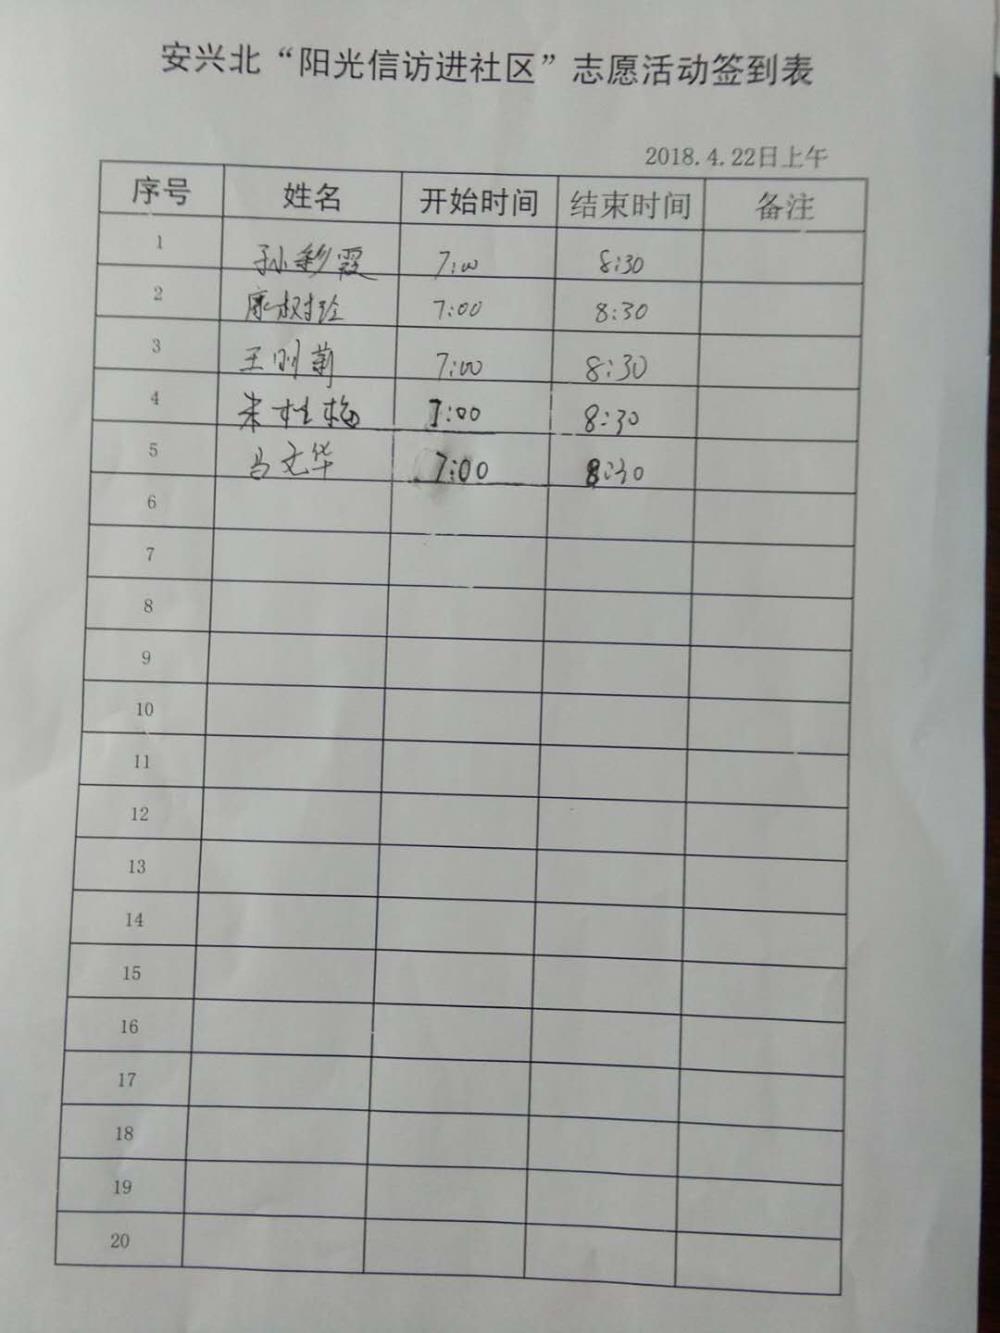 安兴北“阳光信访进社区”志愿活动签到表
2018.4.22日上午
序号 姓名 开始时间 结束时间 备注
1 孙彩霞 7:00 8:30
2 康淑 7:00 8:30
3 王刚菊 7:00 8:30
4 朱桂梅 7:00 8:30
5 马文华 7:00 8:30
6
7
8
9
10
11
12
13
14
15
16
17
18
19
20